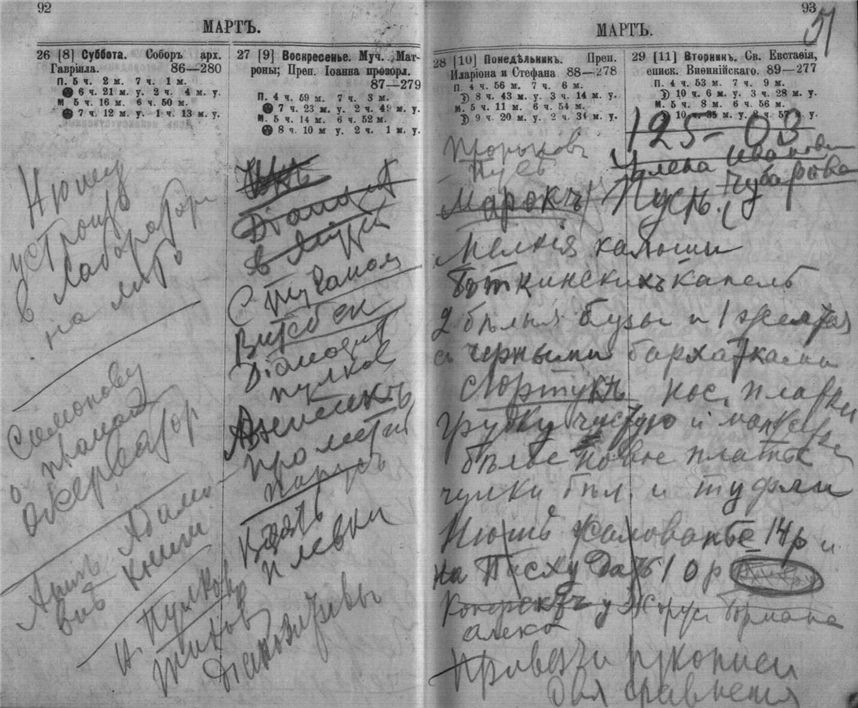 92
МАРТЪ.
26 [8] Суббота. Соборъ арх.
Гавріила. 86—280
П. 5 ч. 2 м. 7 ч. 1 м.
6 ч. 21 м. у. 2 ч. 4 м. у.
М 5 ч. 16 м. 6 ч. 50 м.
7 ч. 12 м. у. 1 ч. 13 м. у.
Нюшу
устроить
в лаборатор
на лето
Симонову
о
обсерватор
Архъ Адамо
вой книги
Н. Пулково
Тихов
Діапозитивы
27 [9] Воскресенье. Муч. Мат-
роны; Преп. Іоанна прозорл.
87—279
П. 4 ч. 59 м. 7 ч. 3 м.
7 ч. 23 м. у. 2 ч. 49 м. у.
М. 5 ч. 14 м. 6 ч. 52 м.
8 ч. 10 м у. 2 ч. 1 м. у.
Діапозит
в
Стучаной
Витбен
Діапозит
пулков
Анненскъ
прометей
парусъ
Взять
плевки
93
51
МАРТЪ.
28 [10] Понедѣльникъ. Преп.
Иларіона и Стефана 88—278
П. 4 ч. 56 м. 7 ч. 6 м.
8 ч. 43 м. у. 3 ч. 14 м. у.
М. 5 ч. 11 м. 6 ч. 54 м.
9 ч. 20 м. у. 2 ч. 34 м. у.
29 [11] Вторникъ. Св. Евстаѳія,
еписк. Виѳинійскаго. 89—277
П. 4 ч. 53 м. 7 ч. 9 м.
10 ч. 6 м. у. 3 ч. 28 м. у.
М. 5 ч. 8 м. 6 ч. 56 м.
125-03
Елена Иванов
Чубарова
Марокъ Пусть
Мелкія калоши
Боткинскихъ капель
2 бѣлыя блузы и 1 желтая
съ черными бархатками
Сюртукъ нос. платки
Грубку чистую и манжеты
бѣлье новое платье
чулки бѣл. и туфли
Нюшѣ жалованье 14 р и
на Пасху дать 10 р
у Жоржа Бормана
алеко
Привезти рукописи
для сравненія